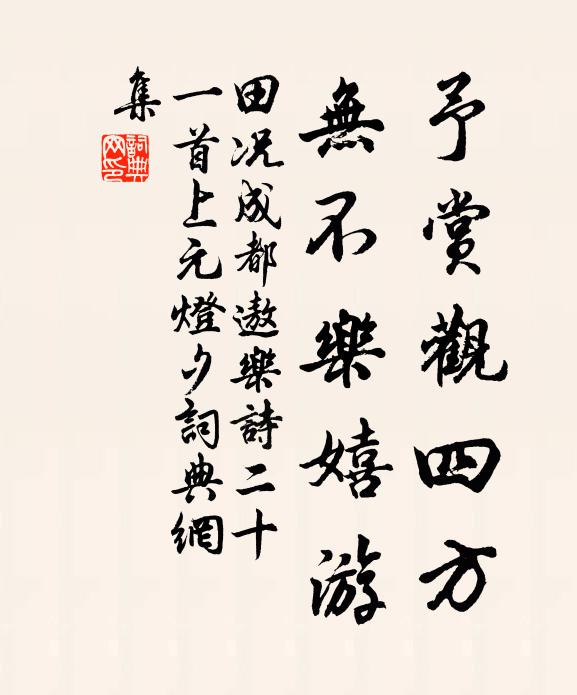 予賞觀四方
無不樂嬉游
田况成都遨樂詩二十
一首上元燈夕詞典網
集
詞典
网印